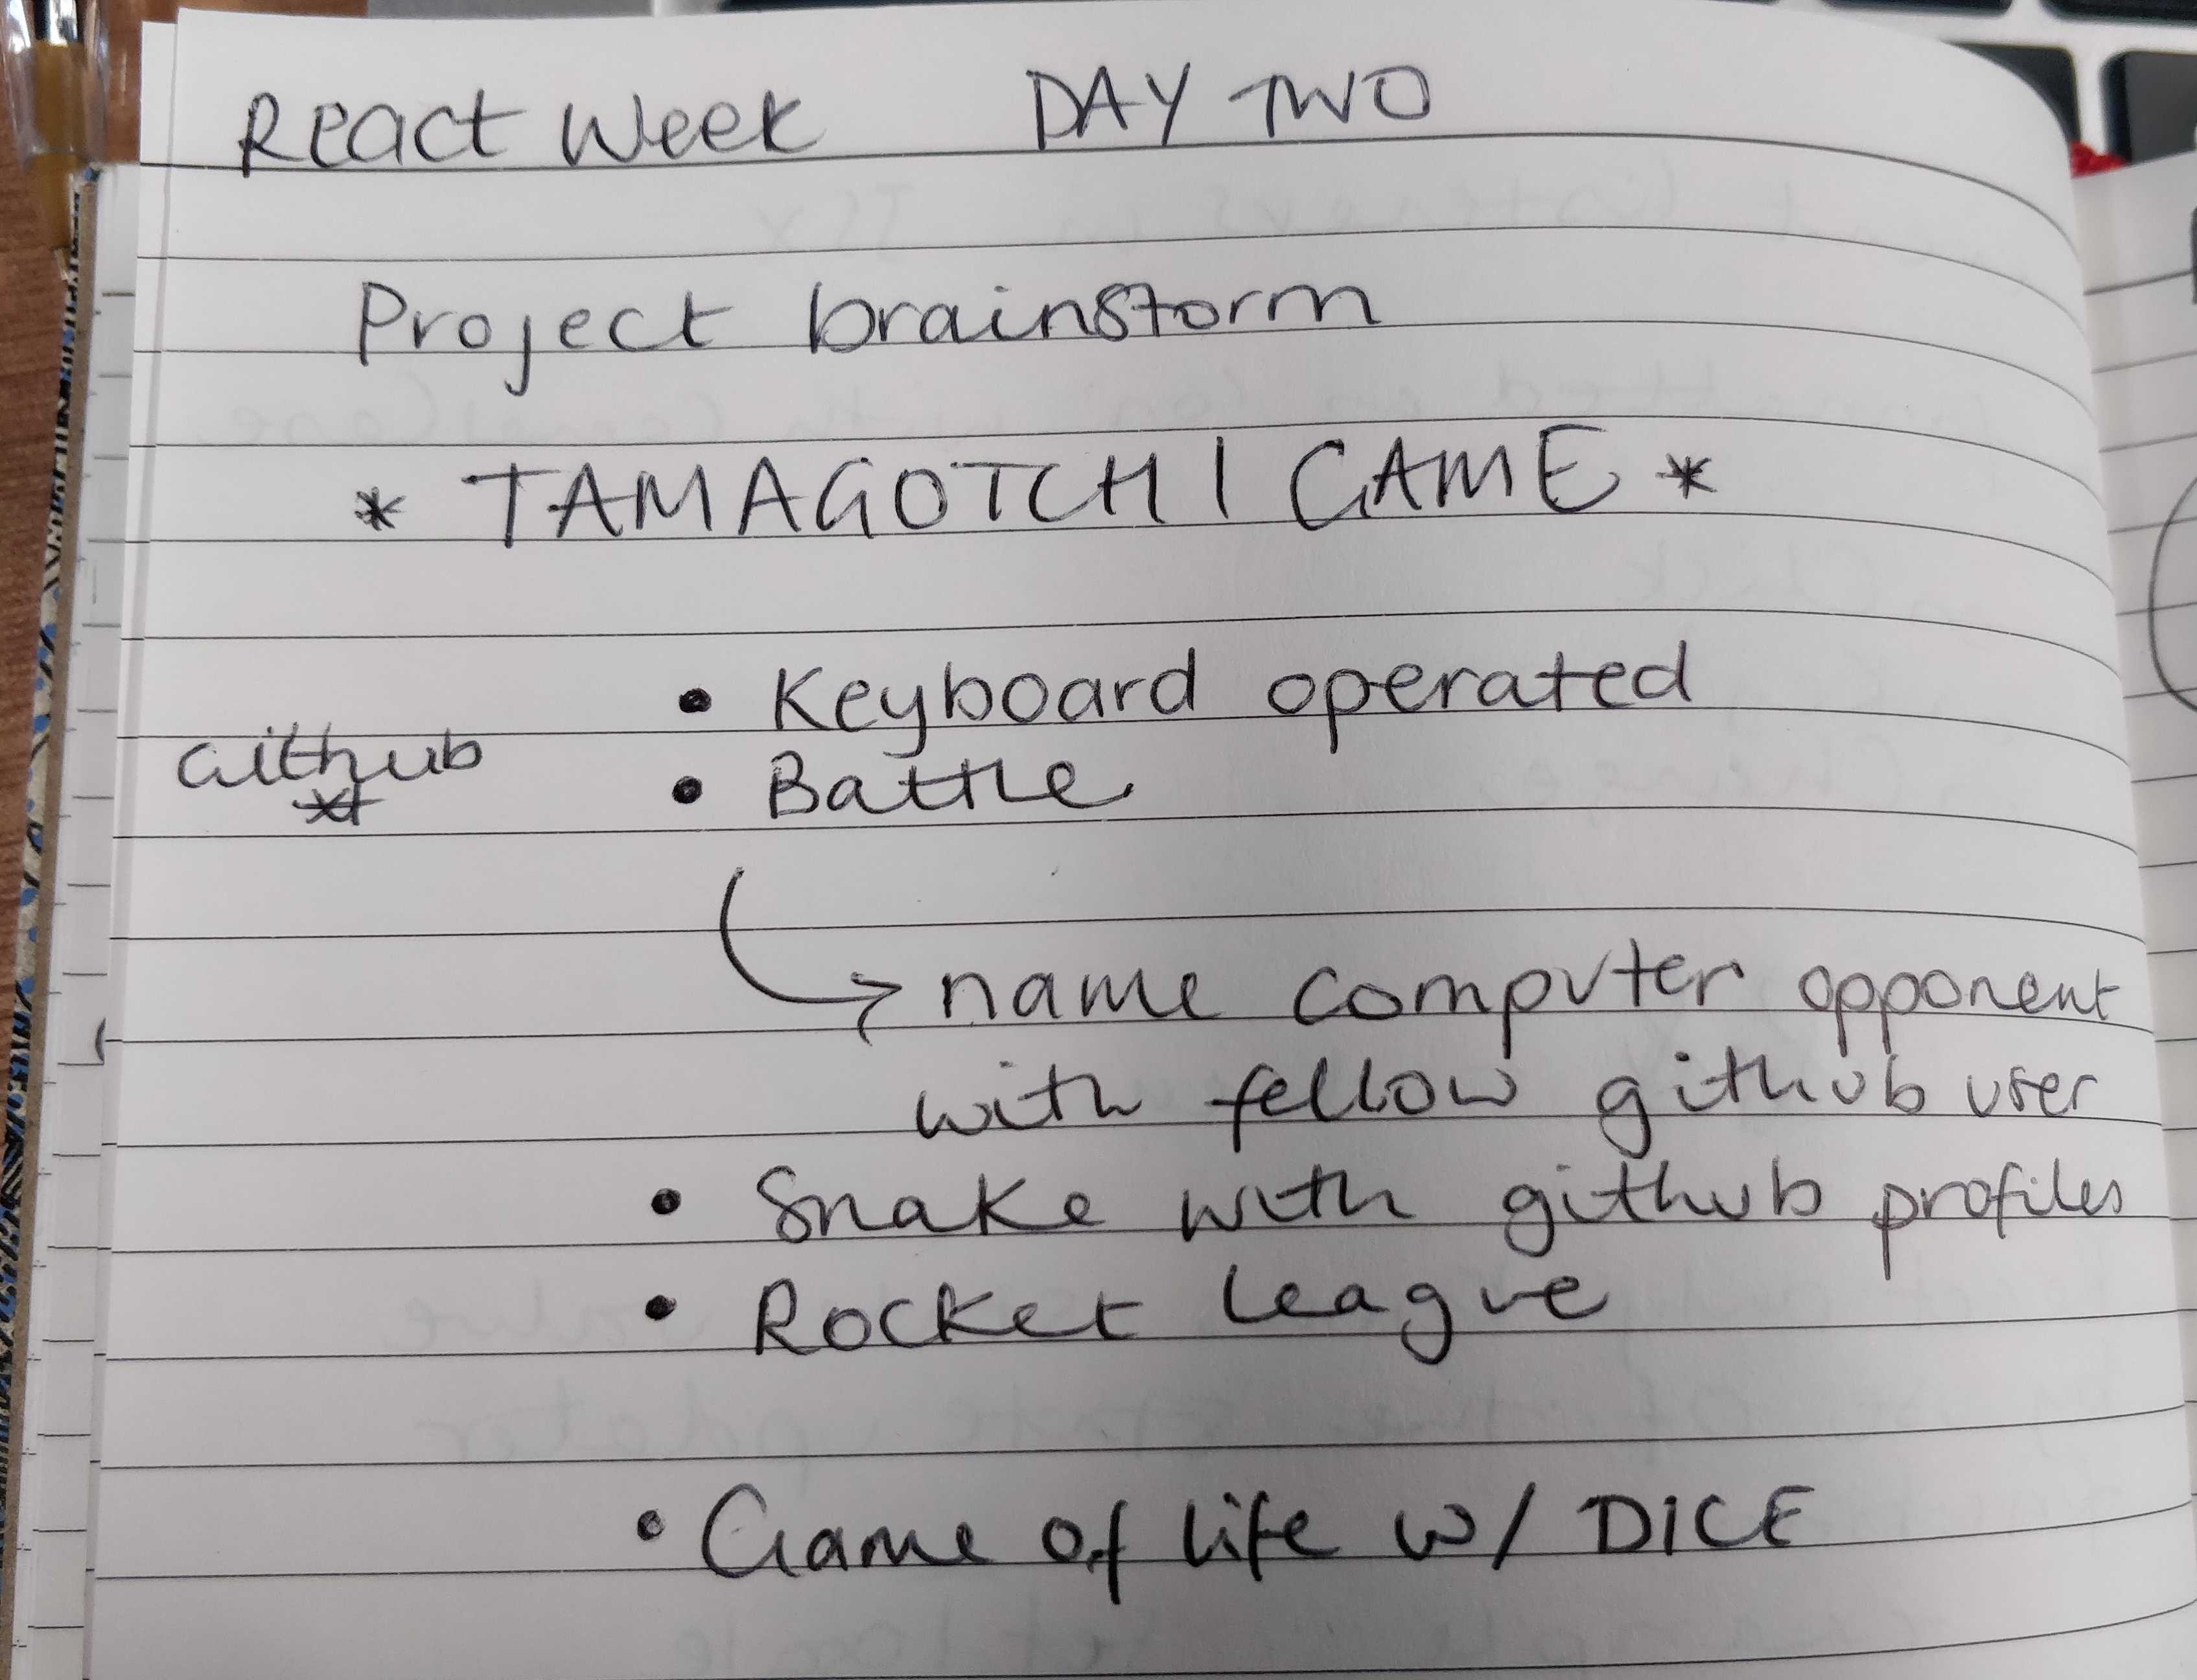 React Week DAY TWO
Project brainstorm
* TAMAGOTCHI GAME *
• Keyboard operated
Github
*
• Battle
→ name computer opponent
with fellow github user
• Snake with github profiles
• Rocket league
• Game of life w/ DICE